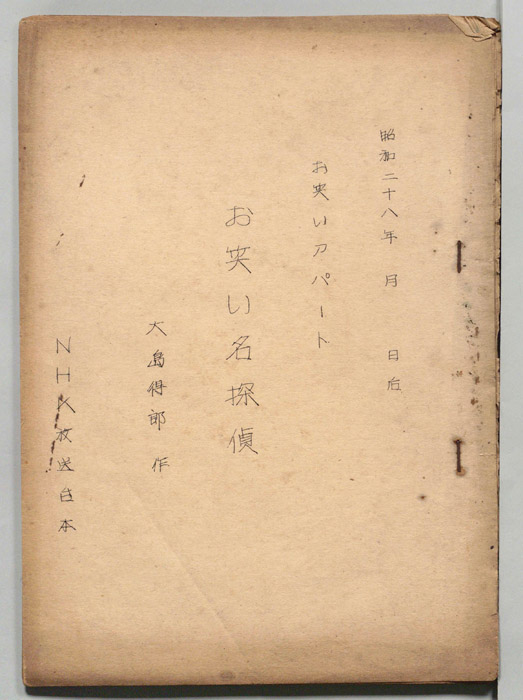 昭和二十八年 月 日后
お笑いアパート
お笑い名探偵
大島得郎 作
NHK放送台本